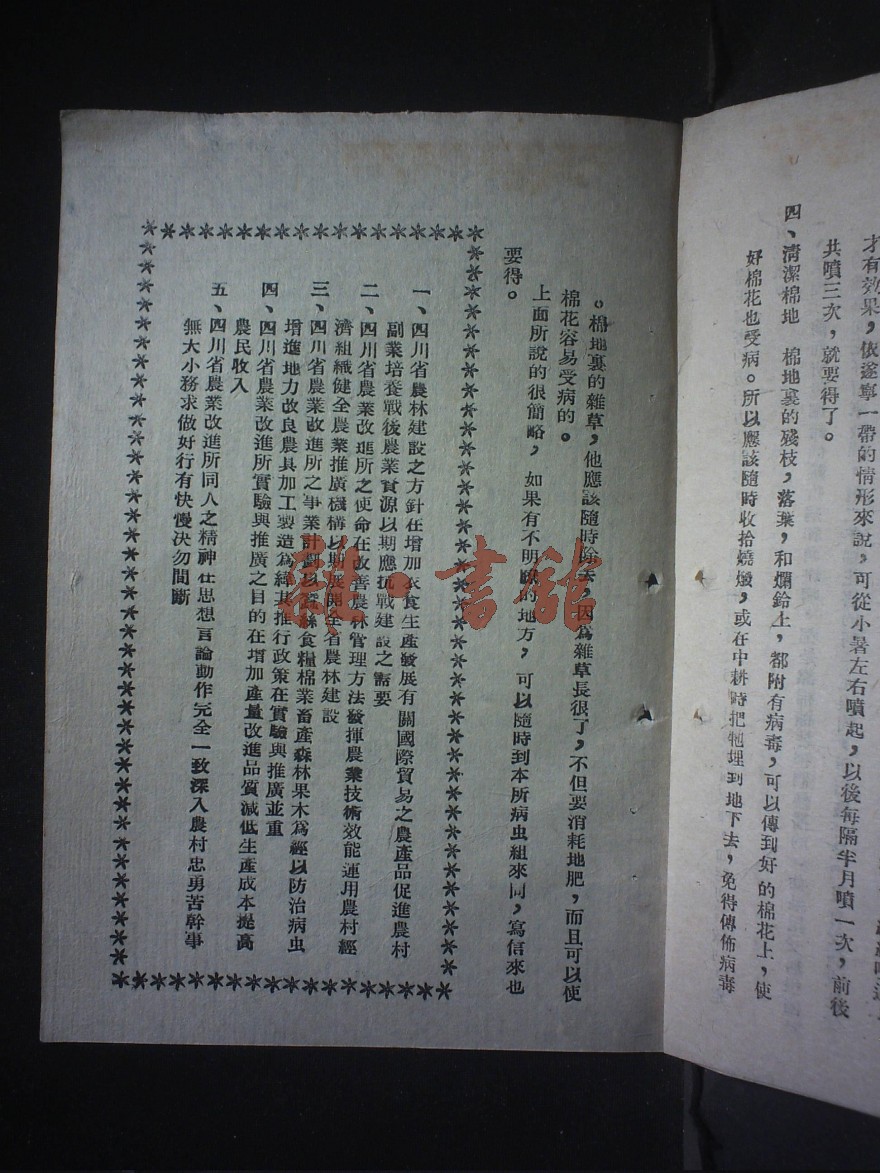 才有效果，依遂寧一帶的情形來說，可從小暑左右噴起，以後每隔半月噴一次，前後
共噴三次，就要得了。
四、清潔棉地　棉地裏的殘枝，落葉，和爛鈴上，都附有病毒，可以傳到好的棉花上，使
好棉花也受病。所以應該隨時收拾燒燬，或在中耕時把牠埋到地下去，免得傳佈病毒
。棉地裏的雜草，他應該隨時除去，因爲雜草長很了，不但要消耗地肥，而且可以使
棉花容易受病的。
上面所說的很簡略，如果有不明瞭的地方，可以隨時到本所病虫組來問，寫信來也
要得。
一、四川省農林建設之方針在增加衣食生產發展有關國際貿易之農產品促進農村
副業培養戰後農業資源以期應抗戰建設之需要
二、四川省農業改進所之使命在改善農林管理方法發揮農業技術效能運用農村經
濟組織健全農業推廣機構以期展開全省農林建設
三、四川省農業改進所之事業計劃以蠶絲食糧棉業畜產森林果木爲經以防治病虫
增進地力改良農具加工製造爲緯其推行政策在實驗與推廣並重
四、四川省農業改進所實驗與推廣之目的在增加產量改進品質減低生產成本提高
農民收入
五、四川省農業改進所同人之精神在思想言論動作完全一致深入農村忠勇苦幹事
無大小務求做好行有快慢決勿間斷
雜·書館